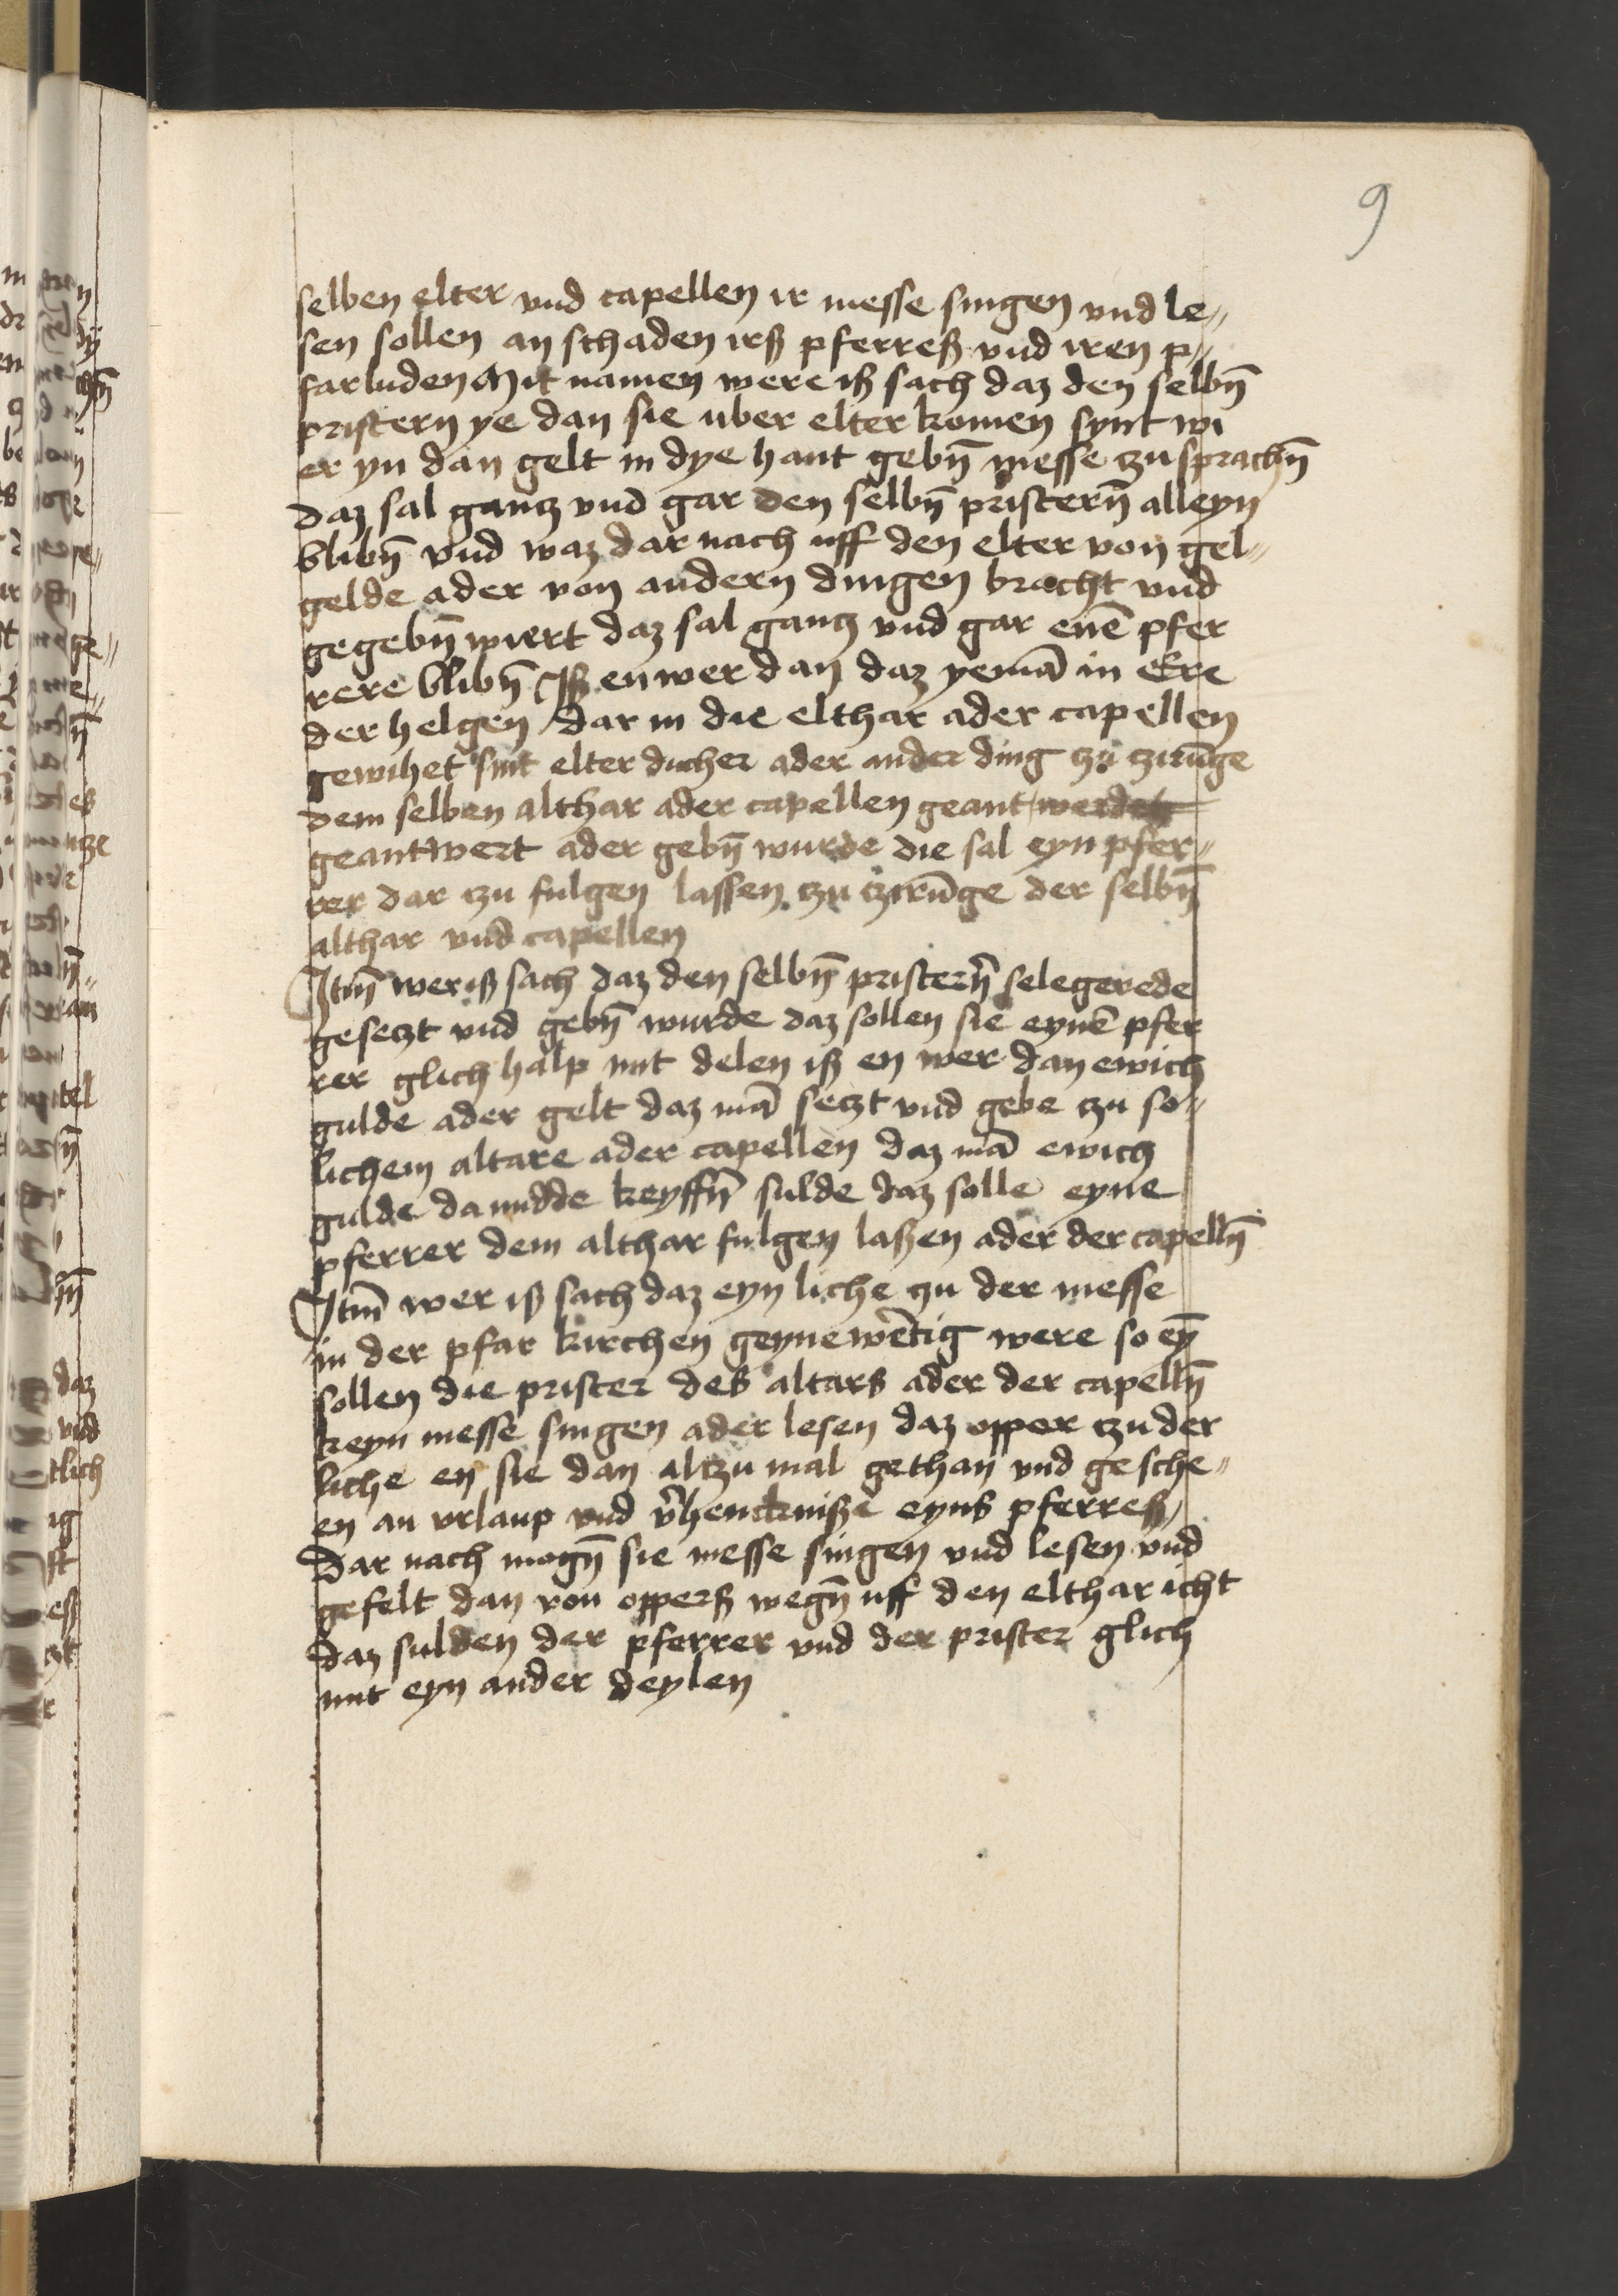 9
selben elter vnd capellen ir messe singen vnd le„
sen sollen an schaden irß pferreß vnd iren p„
farluden Mit namen were iß sach daz den selbn̄
pristern ye dan sie uber elter komen synt wi
er yn dan gelt in dye hant gebn̄ messe zu sprachn̄
daz sal gantz vnd gar den selbn̄ pristern̄ alleyn
blibn̄ vnd waz dar nach uff den elter von gel„
gelde ader von andern dingen bracht vnd
gegebn̄ wiert daz sal gantz vnd gar enē pfer
rere blibn̄ Iß en wer dan daz yemā in Ere
der helgen dar in die elthar ader capellen
gewihet sint elter ducher ader ander ding zu zirūge
dem selben althar ader capellen geant werden
geantwert ader gebn̄ wurde die sal eyn pfer„
rer dar zu fulgen lassen zu zirūge der selbn̄
althar vnd capellen
Itm̄ wer iß sach daz den selbn̄ pristern̄ selegerede
gesetzt vnd gebn̄ wurde daz sollen sie eynē pfer
rer glich halp mit delen iß en wer dan ewich
gulde ader gelt daz mā setzt vnd gebe zu so„
lichem altare ader capellen daz mā ewich
gulde da midde keyffn̄ sulde daz solle eyne
pferrer dem althar fulgen laßen ader der capelln̄
Itm̄ wer iß sach daz eyn liche zu der messe
in der pfar kirchen geynewētig were so eȳ
sollen die prister des altars ader der capelln̄
keyn messe singen ader lesen daz opper zu der
liche en sie dan altzu mal gethan vnd gesche„
en an vrlaup vnd v̄henckniße eyns pferreß
Dar nach mogn̄ sie messe singen vnd lesen vnd
gefelt dan von opperß wegn̄ uff den elthar icht
daz sulden der pferrer vnd der prister glich
mit eyn ander deylen